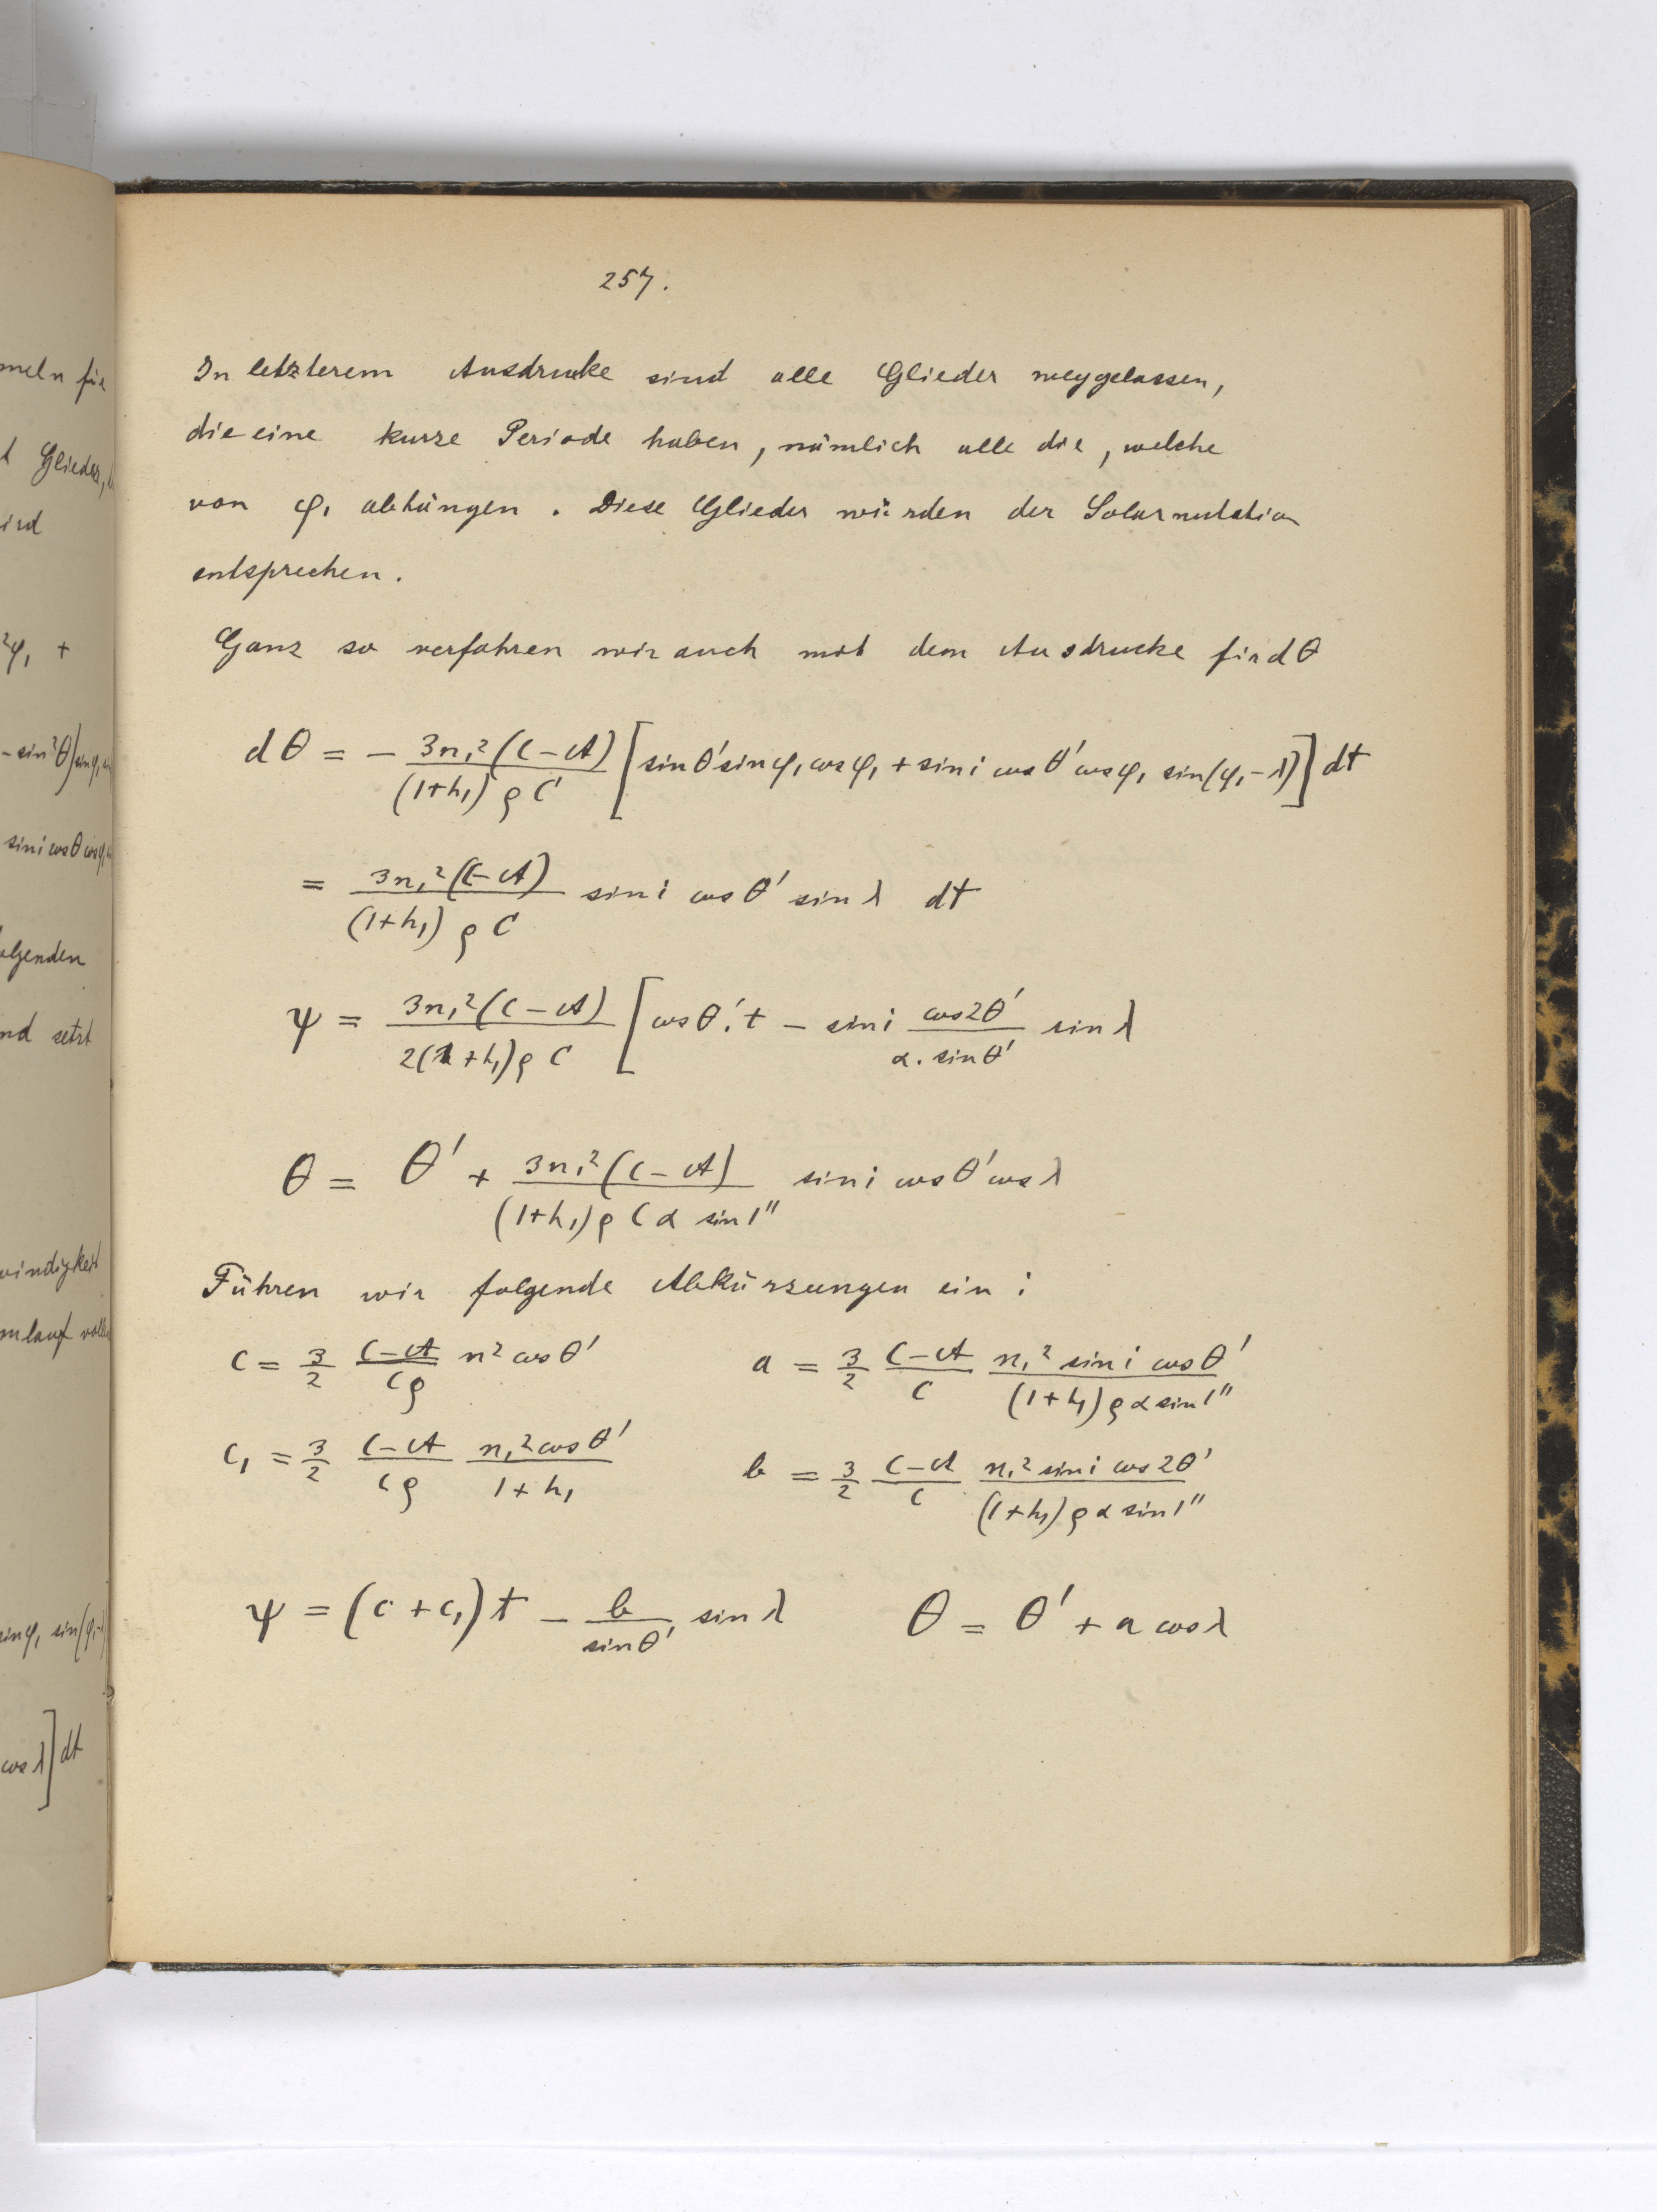 257.
In letzterem Ausdrucke sind alle Glieder weggelassen,
die eine kurze Periode haben, nämlich alle die, welche
von φ₁ abhängen. Diese Glieder würden der Solarnutation
entsprechen.
Ganz so verfahren wir auch mit dem Ausdrucke für dθ
dθ = - 3n₁²(C-A) / (1+h₁)ρC [sinθ' sinφ₁ cosφ₁ + sin i cosθ' cosφ₁ sin(φ₁-λ)] dt
= 3n₁²(C-A) / (1+h₁)ρC sin i cosθ' sinλ dt
ψ = 3n₁²(C-A) / 2(1+h₁)ρC [cosθ'.t - sin i cos2θ' / α.sinθ' sinλ
θ = θ' + 3n₁²(C-A) / (1+h₁)ρCα sin1" sin i cosθ' cosλ
Führen wir folgende Abkürzungen ein:
c = 3/2 C-A / Cρ n² cosθ' a = 3/2 C-A / C n₁² sin i cosθ' / (1+h₁)ρα sin1"
c₁ = 3/2 C-A / Cρ n₁² cosθ' / 1+h₁ b = 3/2 C-A / C n₁² sin i cos2θ' / (1+h₁)ρα sin1"
ψ = (c+c₁)t - b / sinθ' sinλ θ = θ' + a cosλ